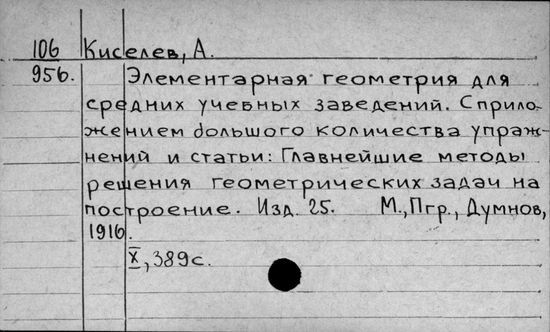 106 Киселев, А.
956. Элементарная геометрия для
средних учебных заведений. С прило-
жением большого количества упраж-
нений и статьи: Главнейшие методы
решения геометрических задач на
построение. Изд. 25. М., Пгр., Думнов,
1916.
X, 389с.